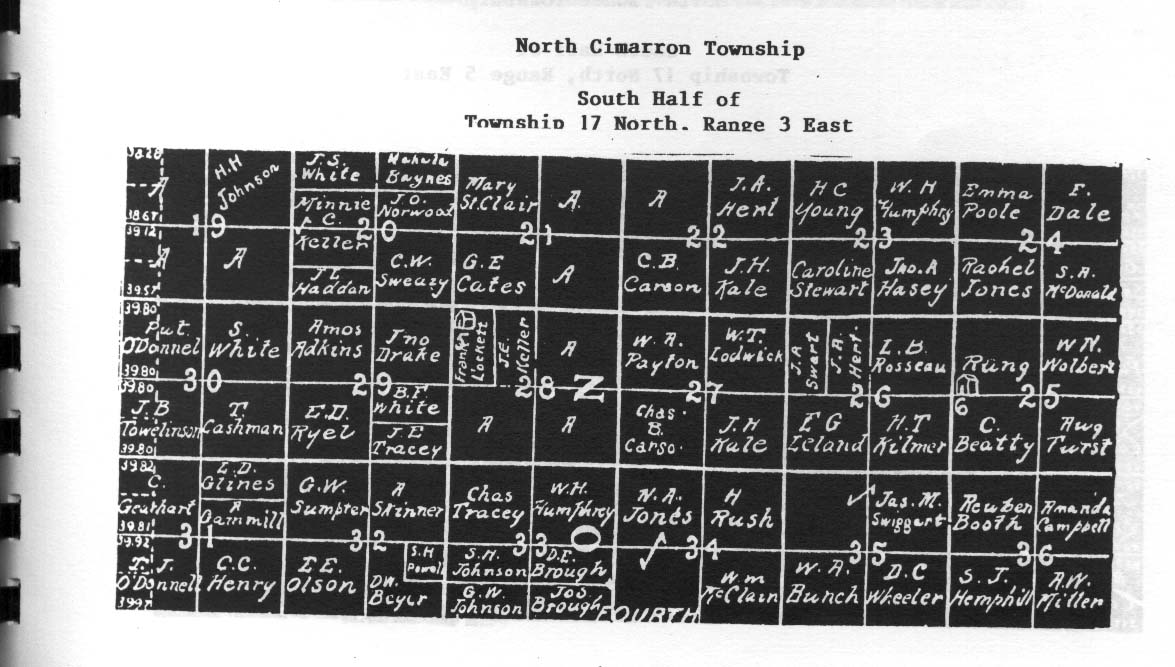 North Cimarron Township
South Half of
Township 17 North, Range 3 East
A
38.67
H.H
Johnson
J.S.
White
Minnie
C.
Keller
Mahala
Baynes
J.O.
Norwood
Mary
St.Clair
A.
A
J.A.
Hert
H C
Young
W. H
Humphry
Emma
Poole
E.
Dale
19
20
21
22
23
24
39.12
A
39.57
A
J L
Haddon
C.W.
Sweazy
G.E
Cates
A
C.B.
Carson
J.H.
Kale
Caroline
Stewart
Jno.A
Hasey
Rachel
Jones
S.A.
McDonald
39.80
Put.
O'Donnel
39.80
S.
White
Amos
Adkins
Jno
Drake
Frank
Lockett
J.E.
Keller
A
W. A.
Payton
W.T.
Lodwick
J.A
Swart
J.A.
Hert.
L.B.
Rosseau
Rung
W N.
Wolbert
30
29
28
Z
27
26
6
25
39.80
J.B
Towelinson
39.80
T.
Cashman
E.D.
Ryel
B.F
White
J.E
Tracey
A
A
Chas.
B.
Carso.
J.H
Kale
E G
Leland
H.T
Kilmer
C.
Beatty
Aug
Turst
39.82
C.
Gearhart
39.81
E.D.
Glines
A
Gammill
G.W.
Sumpter
A
Skinner
Chas
Tracey
W.H.
Humphrey
N.A.
Jones
H
Rush
Jas.M.
Swiggart
Reuben
Booth
Amanda
Camppell
31
32
33
O
34
35
36
39.92
T. J.
O'Donnell
39.97
C.C.
Henry
E E.
Olson
D.W.
Beyer
S.H
Powell
S.H.
Johnson
G.W.
Johnson
D.E.
Brough
Jos
Brough
FOURTH
Wm
McClain
W. A.
Bunch
D.C
Wheeler
S. J.
Hemphill
A.W.
Miller